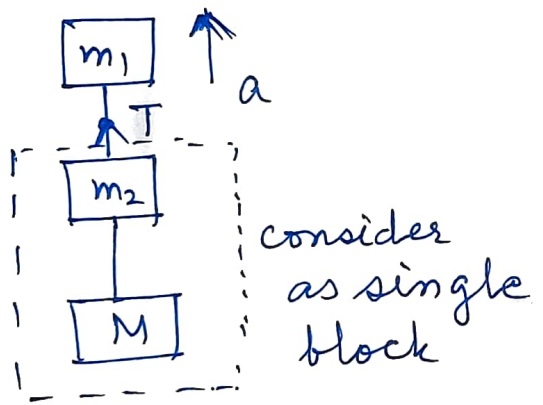 m₁
a
T
m₂
consider
as single
block
M